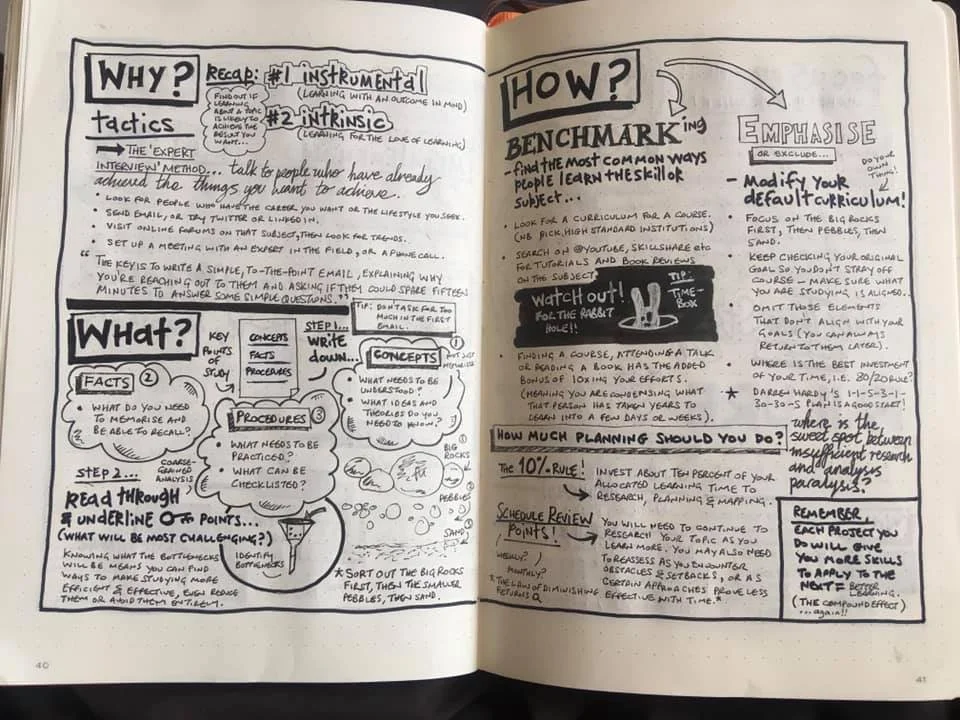 WHY?
RECAP: #1 INSTRUMENTAL
(LEARNING WITH AN OUTCOME IN MIND)
#2 INTRINSIC
(LEARNING FOR THE LOVE OF LEARNING)
FIND OUT IF
LEARNING
ABOUT A TOPIC
IS LIKELY TO
ACHIEVE THE
RESULT YOU
WANT...
tactics
→ THE 'EXPERT
INTERVIEW' METHOD... talk to people who have already
achieved the things you want to achieve.
• LOOK FOR PEOPLE WHO HAVE THE CAREER YOU WANT OR THE LIFESTYLE YOU SEEK.
• SEND EMAIL, OR TRY TWITTER OR LINKEDIN.
• VISIT ONLINE FORUMS ON THAT SUBJECT, THEN LOOK FOR TRENDS.
• SET UP A MEETING WITH AN EXPERT IN THE FIELD, OR A PHONE CALL.
"THE KEY IS TO WRITE A SIMPLE, TO-THE-POINT EMAIL, EXPLAINING WHY
YOU'RE REACHING OUT TO THEM AND ASKING IF THEY COULD SPARE FIFTEEN
MINUTES TO ANSWER SOME SIMPLE QUESTIONS."
TIP: DON'T ASK FOR TOO
MUCH IN THE FIRST
EMAIL.
What?
KEY
POINTS
OF
STUDY
CONCEPTS
FACTS
PROCEDURES
STEP 1...
write
down...
CONCEPTS
①
NOT JUST
MEMORISE
• WHAT NEEDS TO BE
UNDERSTOOD?
• WHAT IDEAS AND
THEORIES DO YOU
NEED TO KNOW?
FACTS ②
• WHAT DO YOU NEED
TO MEMORISE AND
BE ABLE TO RECALL?
PROCEDURES ③
• WHAT NEEDS TO BE
PRACTICED?
• WHAT CAN BE
CHECKLISTED?
STEP 2...
COARSE-
GRAINED
ANALYSIS
Read through
& UNDERLINE KEY POINTS...
(WHAT WILL BE MOST CHALLENGING?)
KNOWING WHAT THE BOTTLENECKS
WILL BE MEANS YOU CAN FIND
WAYS TO MAKE STUDYING MORE
EFFICIENT & EFFECTIVE, EVEN REDUCE
THEM OR AVOID THEM ENTIRELY.
IDENTIFY
BOTTLENECKS
BIG
ROCKS
PEBBLES
SAND
* SORT OUT THE BIG ROCKS
FIRST, THEN THE SMALLER
PEBBLES, THEN SAND.
40
HOW?
BENCHMARKing
- find the most common ways
people learn the skill or
subject...
• LOOK FOR A CURRICULUM FOR A COURSE.
(NB PICK HIGH STANDARD INSTITUTIONS)
• SEARCH ON @YOUTUBE, SKILLSHARE etc
FOR TUTORIALS AND BOOK REVIEWS
ON THE SUBJECT.
Watch out!
FOR THE RABBIT
HOLE!!
TIP:
TIME-
BOX
• FINDING A COURSE, ATTENDING A TALK
OR READING A BOOK HAS THE ADDED
BONUS OF 10XING YOUR EFFORTS.
(MEANING YOU ARE CONDENSING WHAT
THAT PERSON HAS TAKEN YEARS TO
LEARN INTO A FEW DAYS OR WEEKS).
EMPHASISE
OR EXCLUDE...
DO YOUR
OWN
THING!
- Modify your
default curriculum!
• FOCUS ON THE BIG ROCKS
FIRST, THEN PEBBLES, THEN
SAND.
• KEEP CHECKING YOUR ORIGINAL
GOAL SO YOU DON'T STRAY OFF
COURSE - MAKE SURE WHAT
YOU ARE STUDYING IS ALIGNED.
• OMIT THOSE ELEMENTS
THAT DON'T ALIGN WITH YOUR
GOALS (YOU CAN ALWAYS
RETURN TO THEM LATER).
• WHERE IS THE BEST INVESTMENT
OF YOUR TIME, I.E. 80/20 RULE?
★ DARREN HARDY'S 1-1-5-3-1-
30-30-5 PLAN IS A GOOD START!
HOW MUCH PLANNING SHOULD YOU DO?
where is the
sweet spot between
insufficient research
and analysis
paralysis?
The 10% RULE!
INVEST ABOUT TEN PERCENT OF YOUR
ALLOCATED LEARNING TIME TO
RESEARCH, PLANNING & MAPPING.
SCHEDULE REVIEW
POINTS!
WEEKLY?
MONTHLY?
YOU WILL NEED TO CONTINUE TO
RESEARCH YOUR TOPIC AS YOU
LEARN MORE. YOU MAY ALSO NEED
TO REASSESS AS YOU ENCOUNTER
OBSTACLES & SETBACKS, OR AS
CERTAIN APPROACHES PROVE LESS
EFFECTIVE WITH TIME.*
*THE LAW OF DIMINISHING
RETURNS
REMEMBER,
EACH PROJECT YOU
DO WILL GIVE
YOU MORE SKILLS
TO APPLY TO THE
NEXT = BETTER
LEARNING.
(THE COMPOUND EFFECT)
...again!!
41